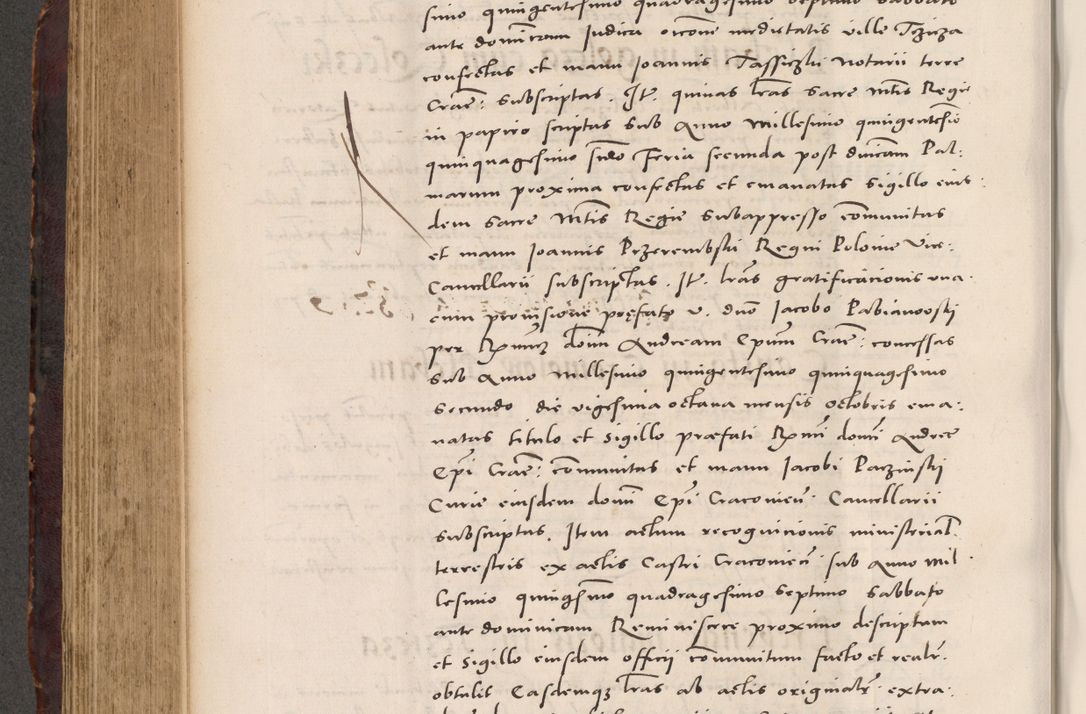 simo quingentesimo quadragesimo septimo Sabbato
ante dominicam Judica oicone medietatis ville Tzicza
confectas et manu Joannis Tassiczki Notarii terre
Crac̄: subscriptas. Jt. quinas lr̄as Sacre Mt̄is Regie
in papiro scriptas sub Anno Millesimo quingentesīo
quinquagesimo sc̄do Feria secunda post dn̄icam Pal:
marum proxima confectas et emanatas sigillo eius:
dem Sacre Mt̄is Regie subappresso com̄unitas
et manu Joannis Przerembskii Regni Polonie Vice:
Cancellarii subscriptas. Jt. lr̄as gratificacionis una
cum provisione pręfato v. dn̄o Jacobo Pabianowski
per Rx̄mum dōm Andream Ep̄um Crac̄: concessas
sub Anno Millesimo quingentesimo quinquagesimo
secundo die vigesima octava mensis octobris ema:
natas titulo et sigillo præfati Rx̄mi domī Andree
Ep̄i Crac̄: com̄unitas et manu Jacobi Paczinskii
Curie eiusdem domī Ep̄i Cracovien̄: Cancellarii
subscriptas. Item actum recognicionis ministerial.
terrestris ex actis Castri Cracovien̄: sub Anno Mil
lesimo quingēsimo quadragesimo septimo Sabbato
ante dominicam Reminiscere proximo descriptam
et sigillo eiusdem officii com̄unitum facto et realr̄.
obtulit Easdemqz lr̄as ab actis originalr̄ extra: